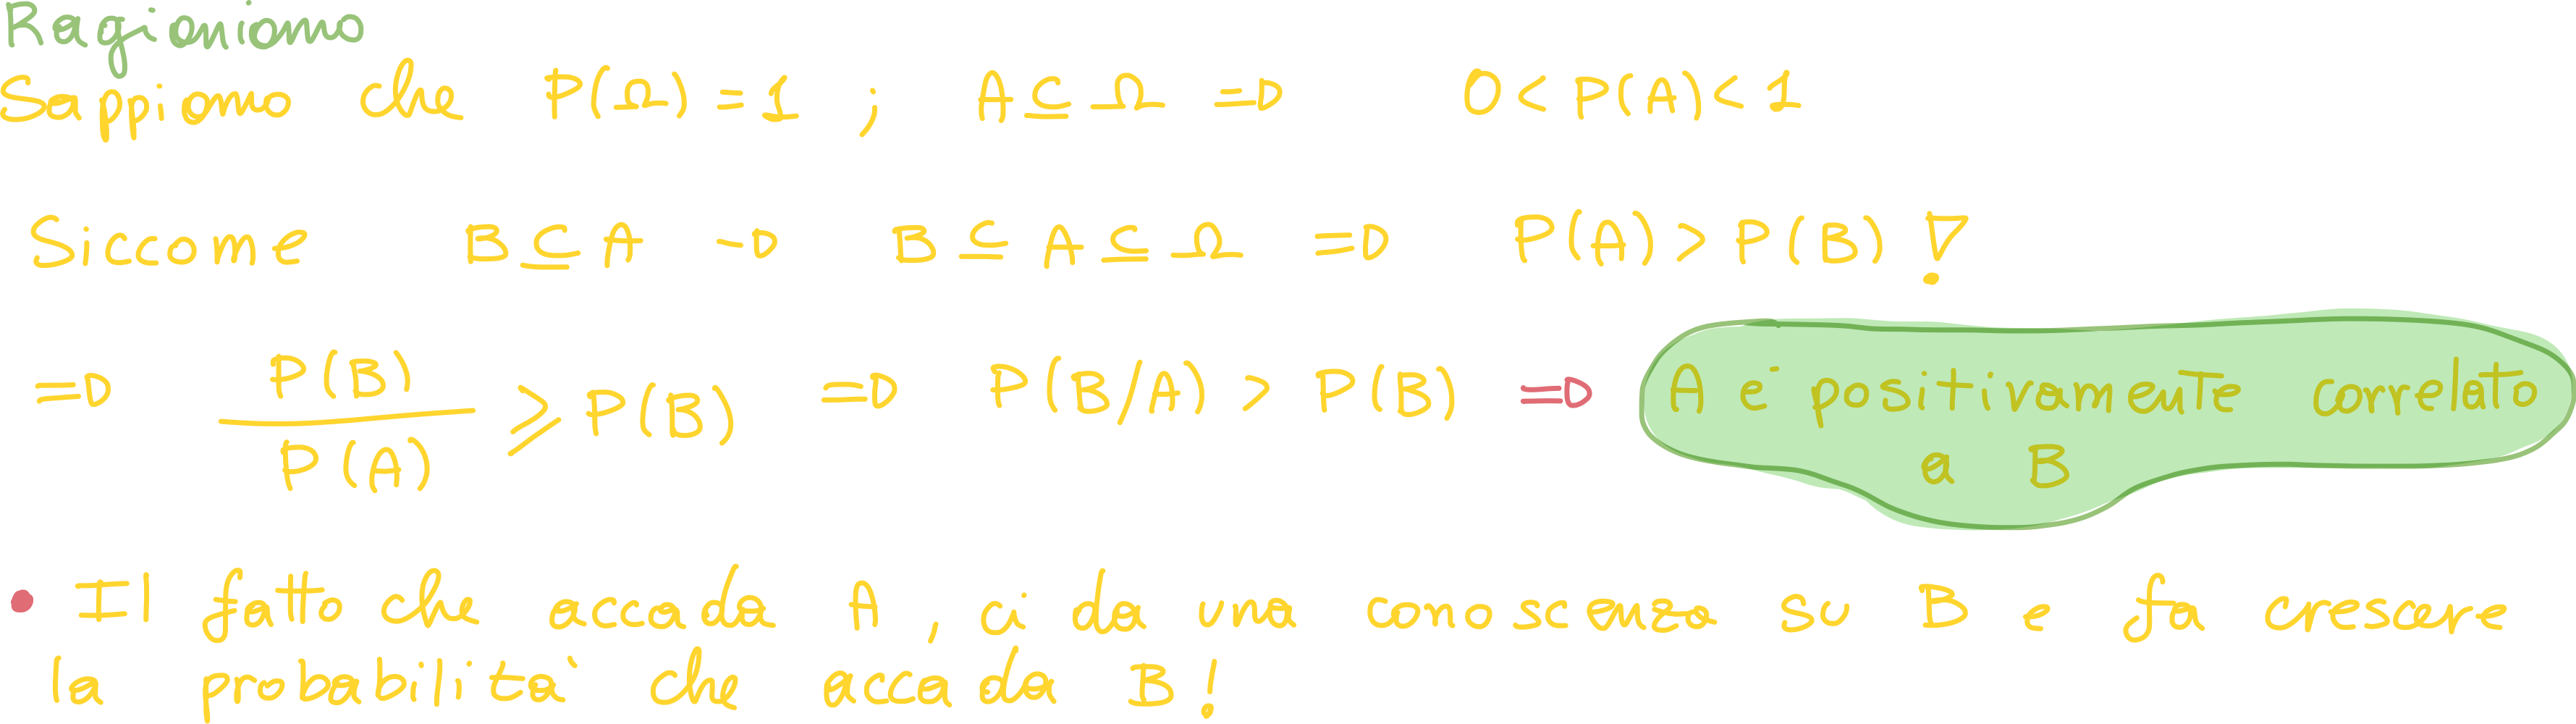 Ragioniamo
Sappiamo che P(Ω)=1 ; A⊆Ω ⇒ 0<P(A)<1
Siccome B⊆A → B⊆A⊆Ω ⇒ P(A)>P(B) !
⇒ P(B)/P(A) ⩾ P(B) ⇒ P(B/A) > P(B) ⇒ A è positivamente correlato
a B
• Il fatto che accada A, ci da una conoscenza su B e fa crescere
la probabilità che accada B!